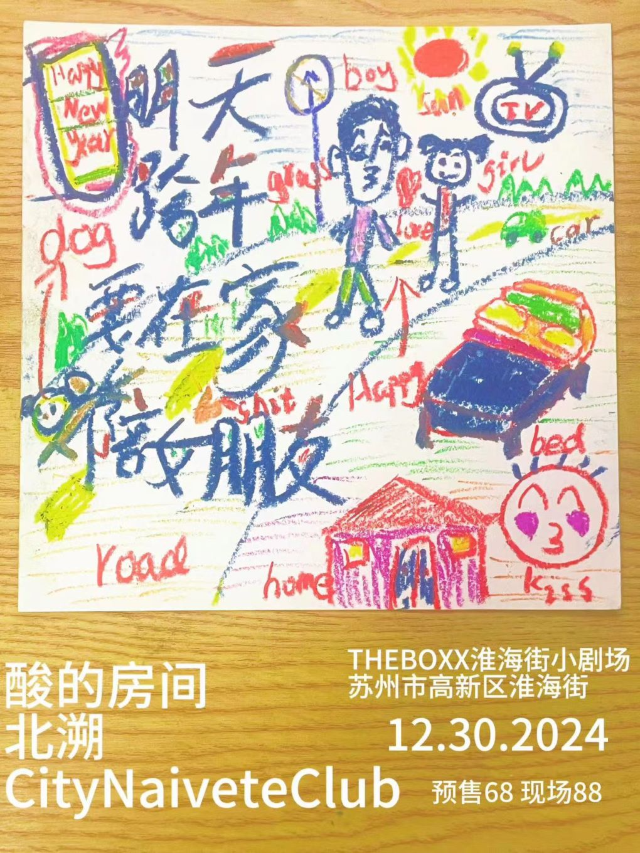 Happy
New
year
明天
跨年
要在家
陪女朋友
boy
sun
TV
grass
girl
love
car
dog
Happy
shit
bed
road
home
kiss
酸的房间
北溯
CityNaiveteClub
THEBOXX淮海街小剧场
苏州市高新区淮海街
12.30.2024
预售68 现场88